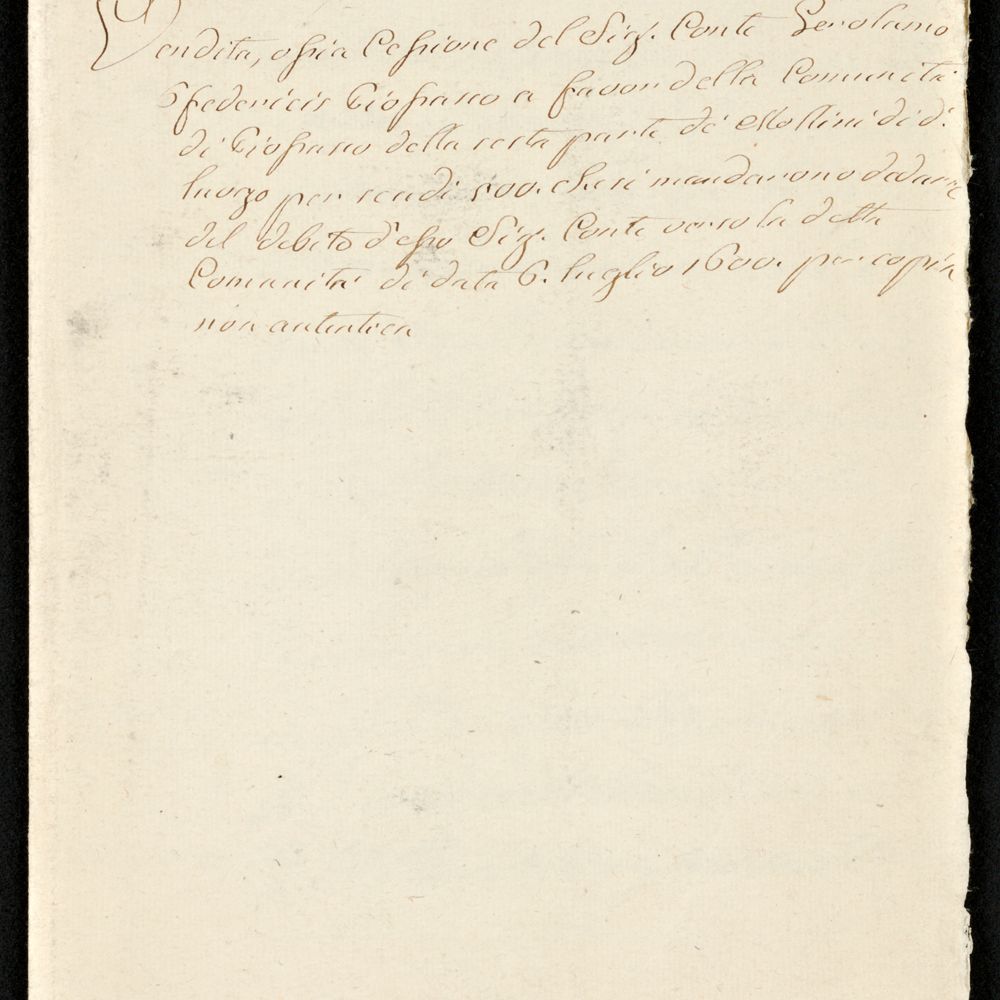 Vendita, ossia Cessione del Sig.r Conte Gerolamo
Sfedericis Giosano a favor della Comunità
di Giosano della sesta parte de' Mollini di d.o
luogo per scudi 500. che si mandarono dedurre
del debito d'esso Sig.r Conte verso la detta
Comunità di data 6. luglio 1600. per copia
non autentica